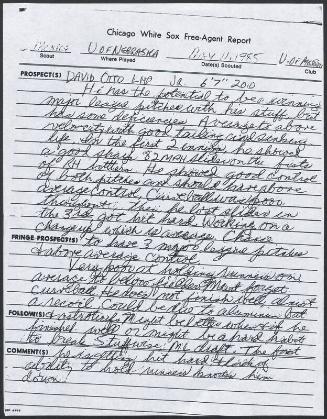 Chicago White Sox Free-Agent Report
U OF NEBRASKA
Where Played
Date(s) Scouted
Club
PROSPECT(S) DAVID OTTO LHP JR 6'7" 210
He has the potential to be a winning
major league pitcher with his stuff but
has some deficiencies. Average to above
velocity with good tailing and sinking
In the first 2 innings he showed
a good sharp 82 MPH slider on the fists
of RH hitters. He showed good control
of both pitches and should have above
average control. Curveball was poor
throughout. Then he lost slider in
the 3rd, got hit hard. Working on a
changeup which is average. Chance
FRINGE PROSPECT(S) to have 3 major league pitches
& above average control.
Very poor at holding runners on
average to below fielder. Must forget
curveball. He does not finish well, almost
a recoil. Could be due to aluminum bat
FOLLOW(S)
finished well or might be a hard habit
to break. Stuffwise: ML draft. The fact
COMMENT(S) he is getting hit hard & lack of
ability to hold runners knocks him
down!